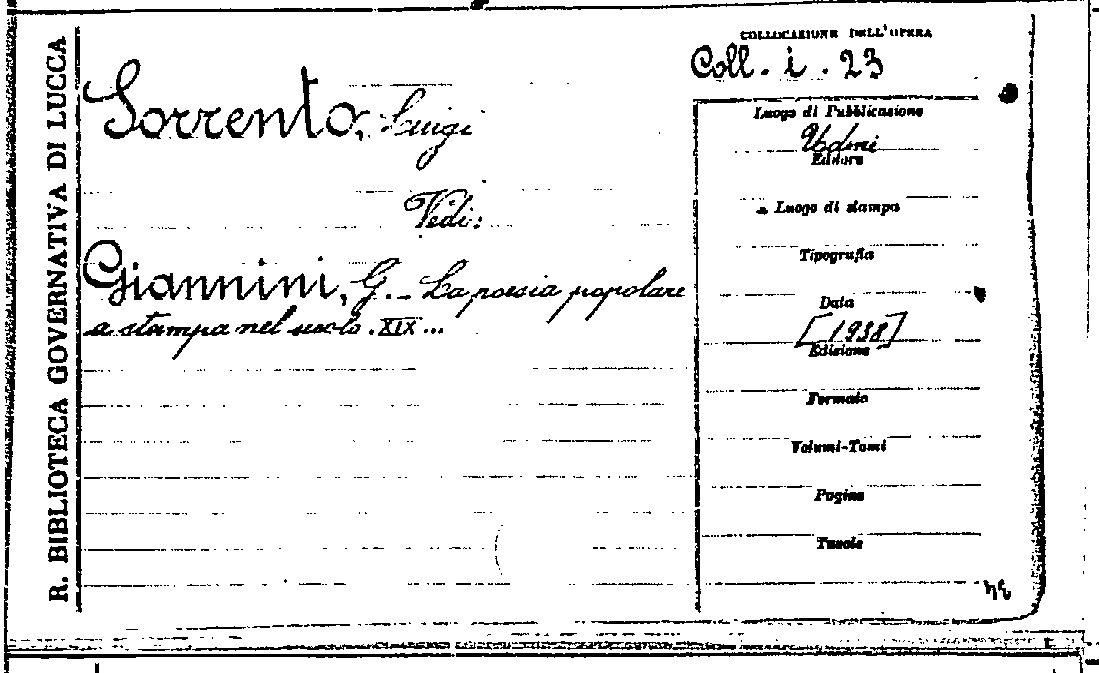 R. BIBLIOTECA GOVERNATIVA DI LUCCA
Sorrento, Luigi
Vedi:
Giannini, G. - La poesia popolare
a stampa nel secolo XIX...
COLLOCAZIONE DELL'OPERA
Coll. i. 23
Luogo di Pubblicazione
Udine
Editore
Luogo di stampa
Tipografia
Data
[1938]
Edizione
Formato
Volumi-Tomi
Pagine
Tavole